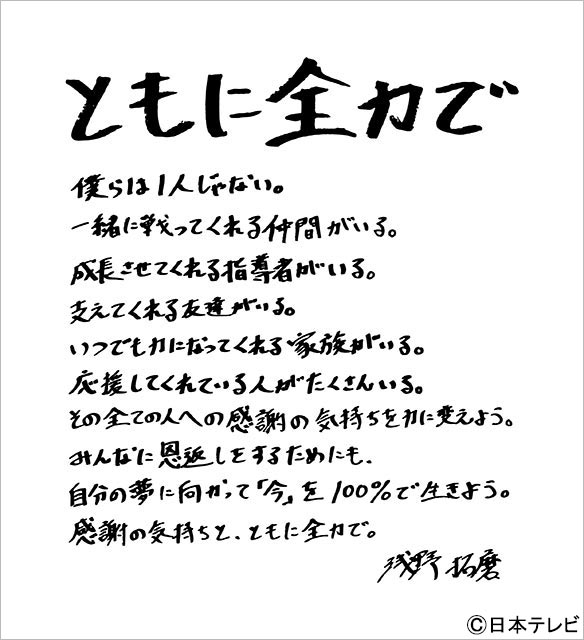 ともに全力で
僕らは1人じゃない。
一緒に戦ってくれる仲間がいる。
成長させてくれる指導者がいる。
支えてくれる友達がいる。
いつでも力になってくれる家族がいる。
応援してくれている人がたくさんいる。
その全ての人への感謝の気持ちを力に変えよう。
みんなに恩返しをするためにも、
自分の夢に向かって「今」を100%で生きよう。
感謝の気持ちと、ともに全力で。
浅野拓磨
©日本テレビ